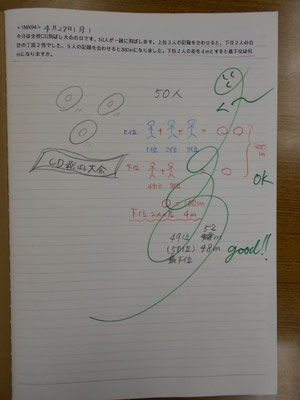 4月27日(月)
今日は全校CD飛ばし大会の日です。50人が一緒に飛ばします。上位3人の記録を合わせると、下位2人の合
計の丁度2倍でした。5人の記録を合わせると300mになりました。下位2人の差を4mとすると最下位は何
mになりますか。
50人
上位 + + = ○ ○
1位 2位 3位
300m
下位 + = ○
49位 50位
OK
CD飛ばし大会
○ = 100m
下位2人の差 4m
49位 52m
(50位) 48m
最下位
good!!